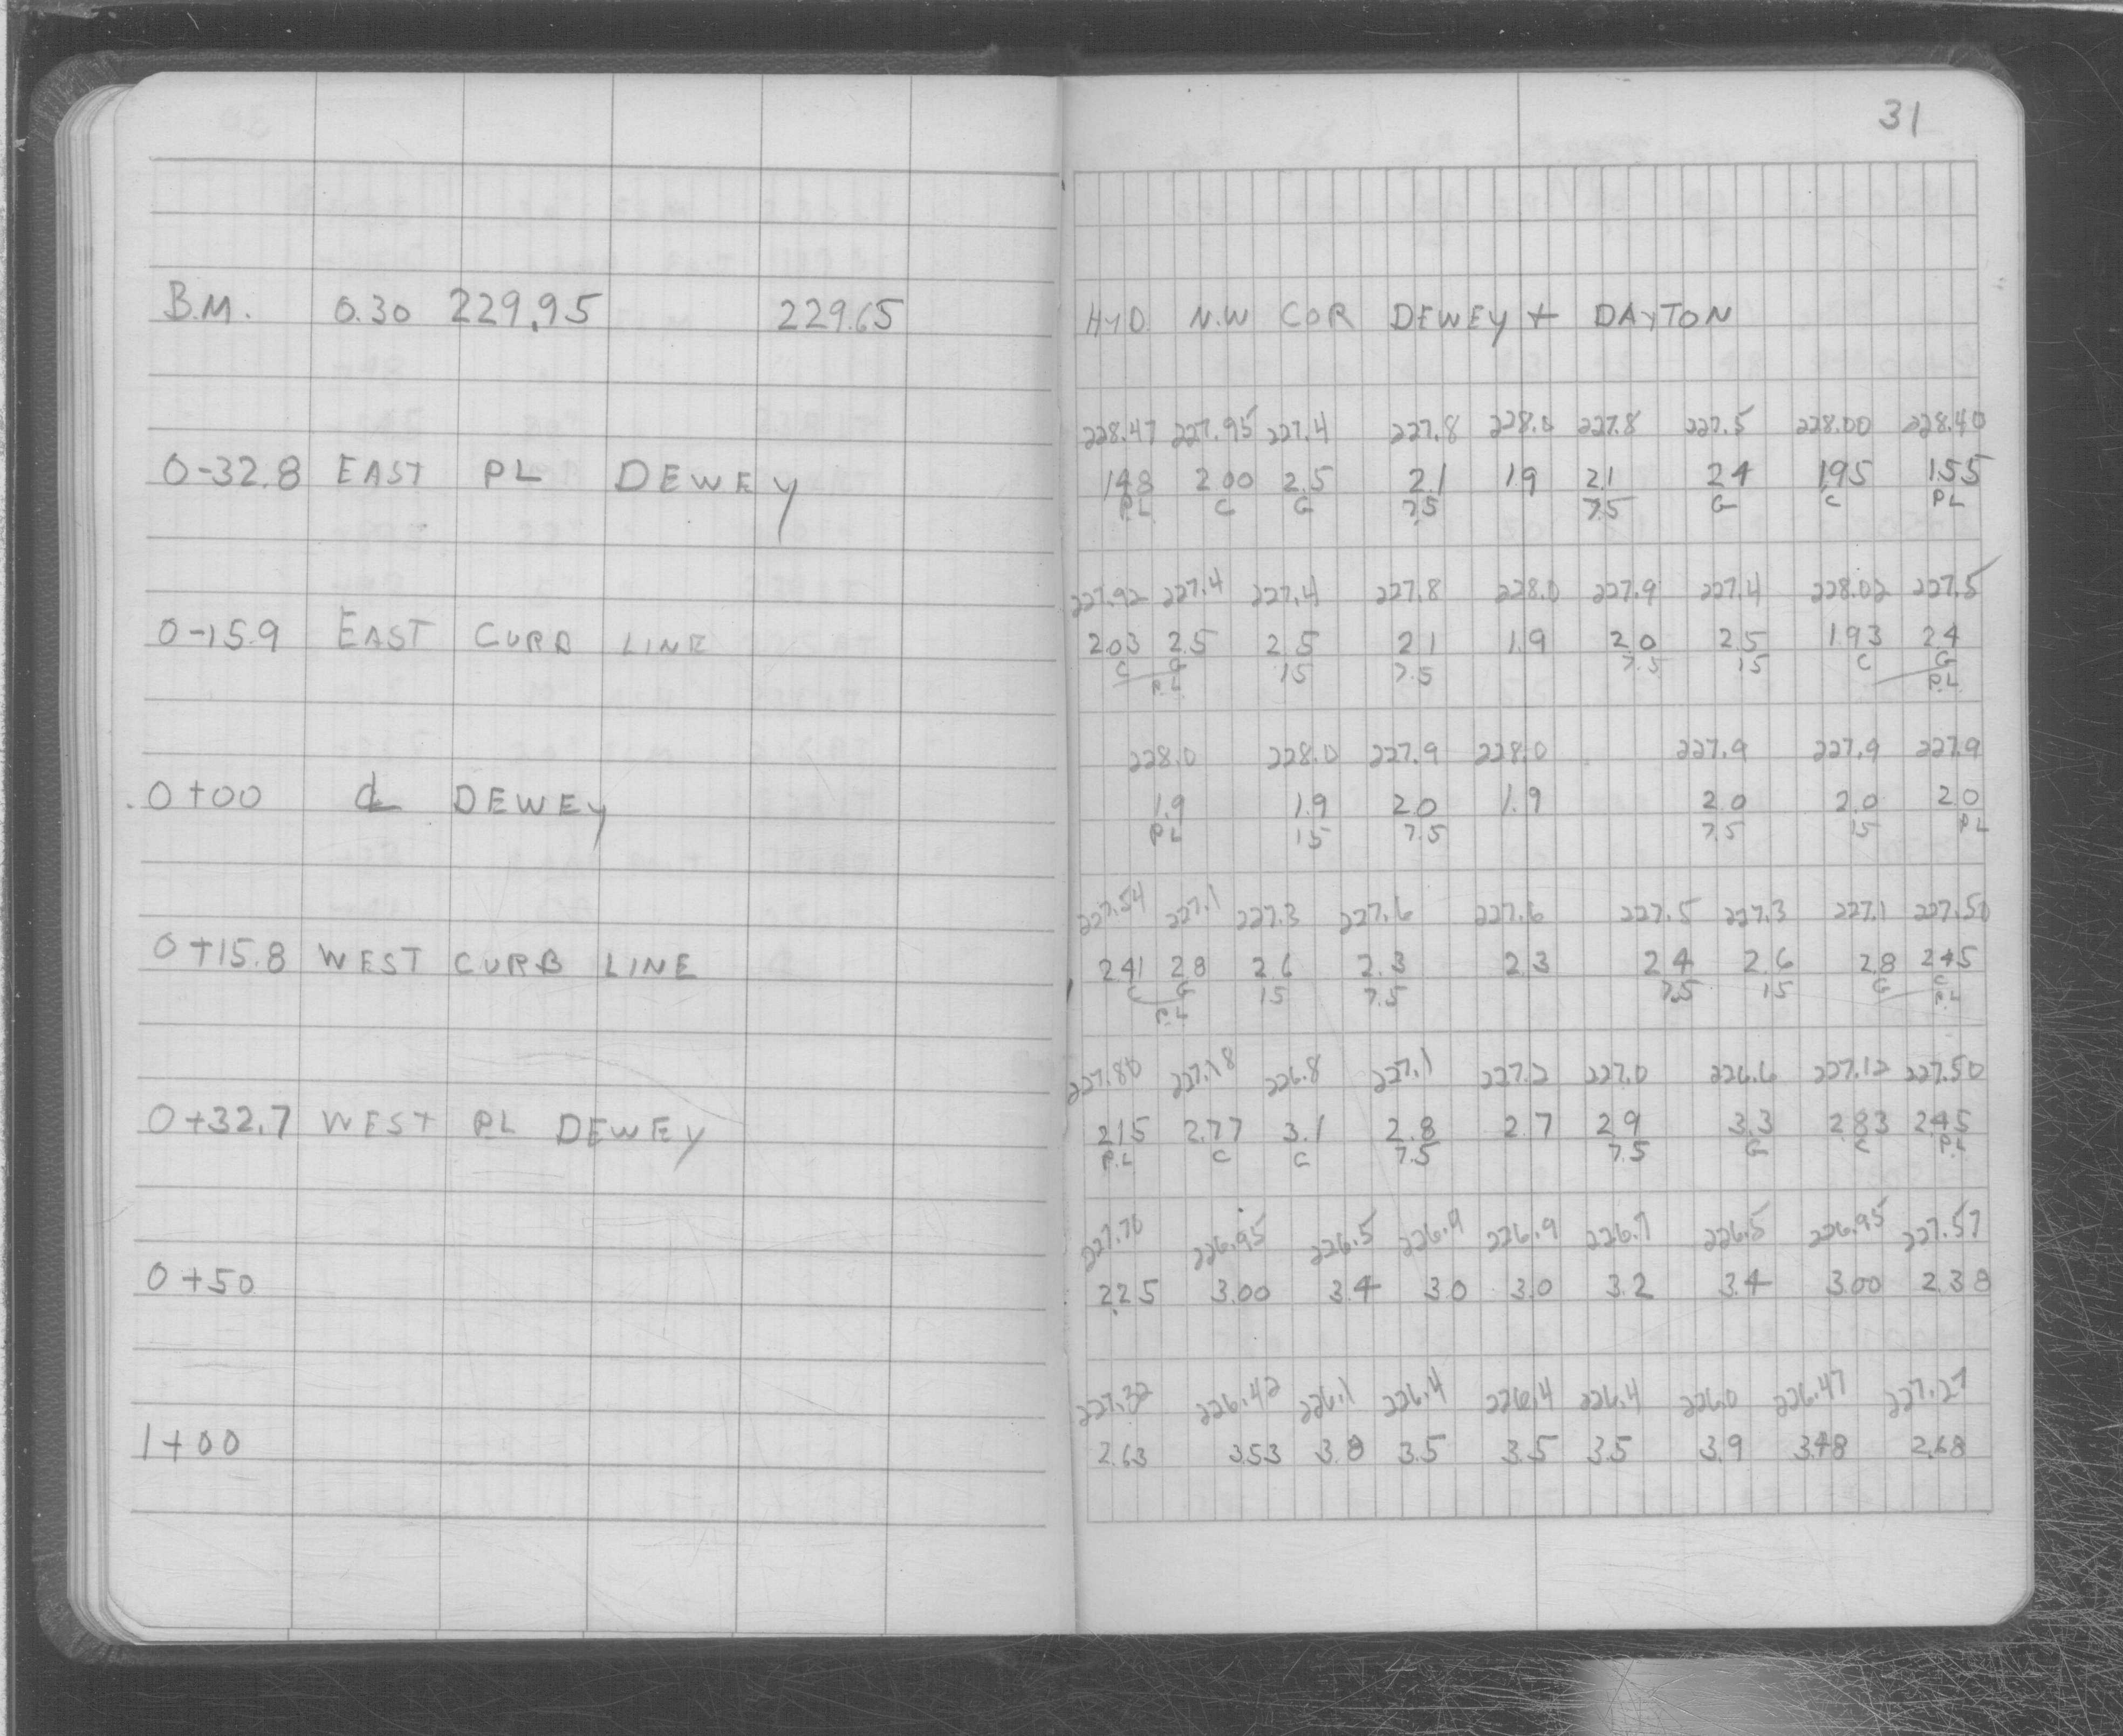 31
B.M. 0.30 229.95 229.65 HYD. N.W COR DEWEY + DAYTON
228.47 227.95 227.4 227.8 228.0 227.8 227.5 228.00 228.40
0-32.8 EAST PL DEWEY 1.48 2.00 2.5 2.1 1.9 2.1 2.4 1.95 1.55
PL C G 7.5 7.5 G C PL
227.92 227.4 227.4 227.8 228.0 227.9 227.4 228.02 227.5
0-15.9 EAST CURB LINE 2.03 2.5 2.5 2.1 1.9 2.0 2.5 1.93 2.4
C G 15 7.5 7.5 15 C G
P.L. P.L.
228.0 228.0 227.9 228.0 227.9 227.9 227.9
0+00 ℄ DEWEY 1.9 1.9 2.0 1.9 2.0 2.0 2.0
PL 15 7.5 7.5 15 PL
227.54 227.1 227.3 227.6 227.6 227.5 227.3 227.1 227.50
0+15.8 WEST CURB LINE 2.41 2.8 2.6 2.3 2.3 2.4 2.6 2.8 2.45
C G 15 7.5 7.5 15 G C
P.L. P.L.
227.80 227.18 226.8 227.1 227.2 227.0 226.6 227.12 227.50
0+32.7 WEST PL DEWEY 2.15 2.77 3.1 2.8 2.7 2.9 3.3 2.83 2.45
P.L C C 7.5 7.5 G C P.L
227.70 226.95 226.5 226.9 226.9 226.7 226.5 226.95 227.57
0+50 2.25 3.00 3.4 3.0 3.0 3.2 3.4 3.00 2.38
227.32 226.42 226.1 226.4 226.4 226.4 226.0 226.47 227.27
1+00 2.63 3.53 3.8 3.5 3.5 3.5 3.9 3.48 2.68